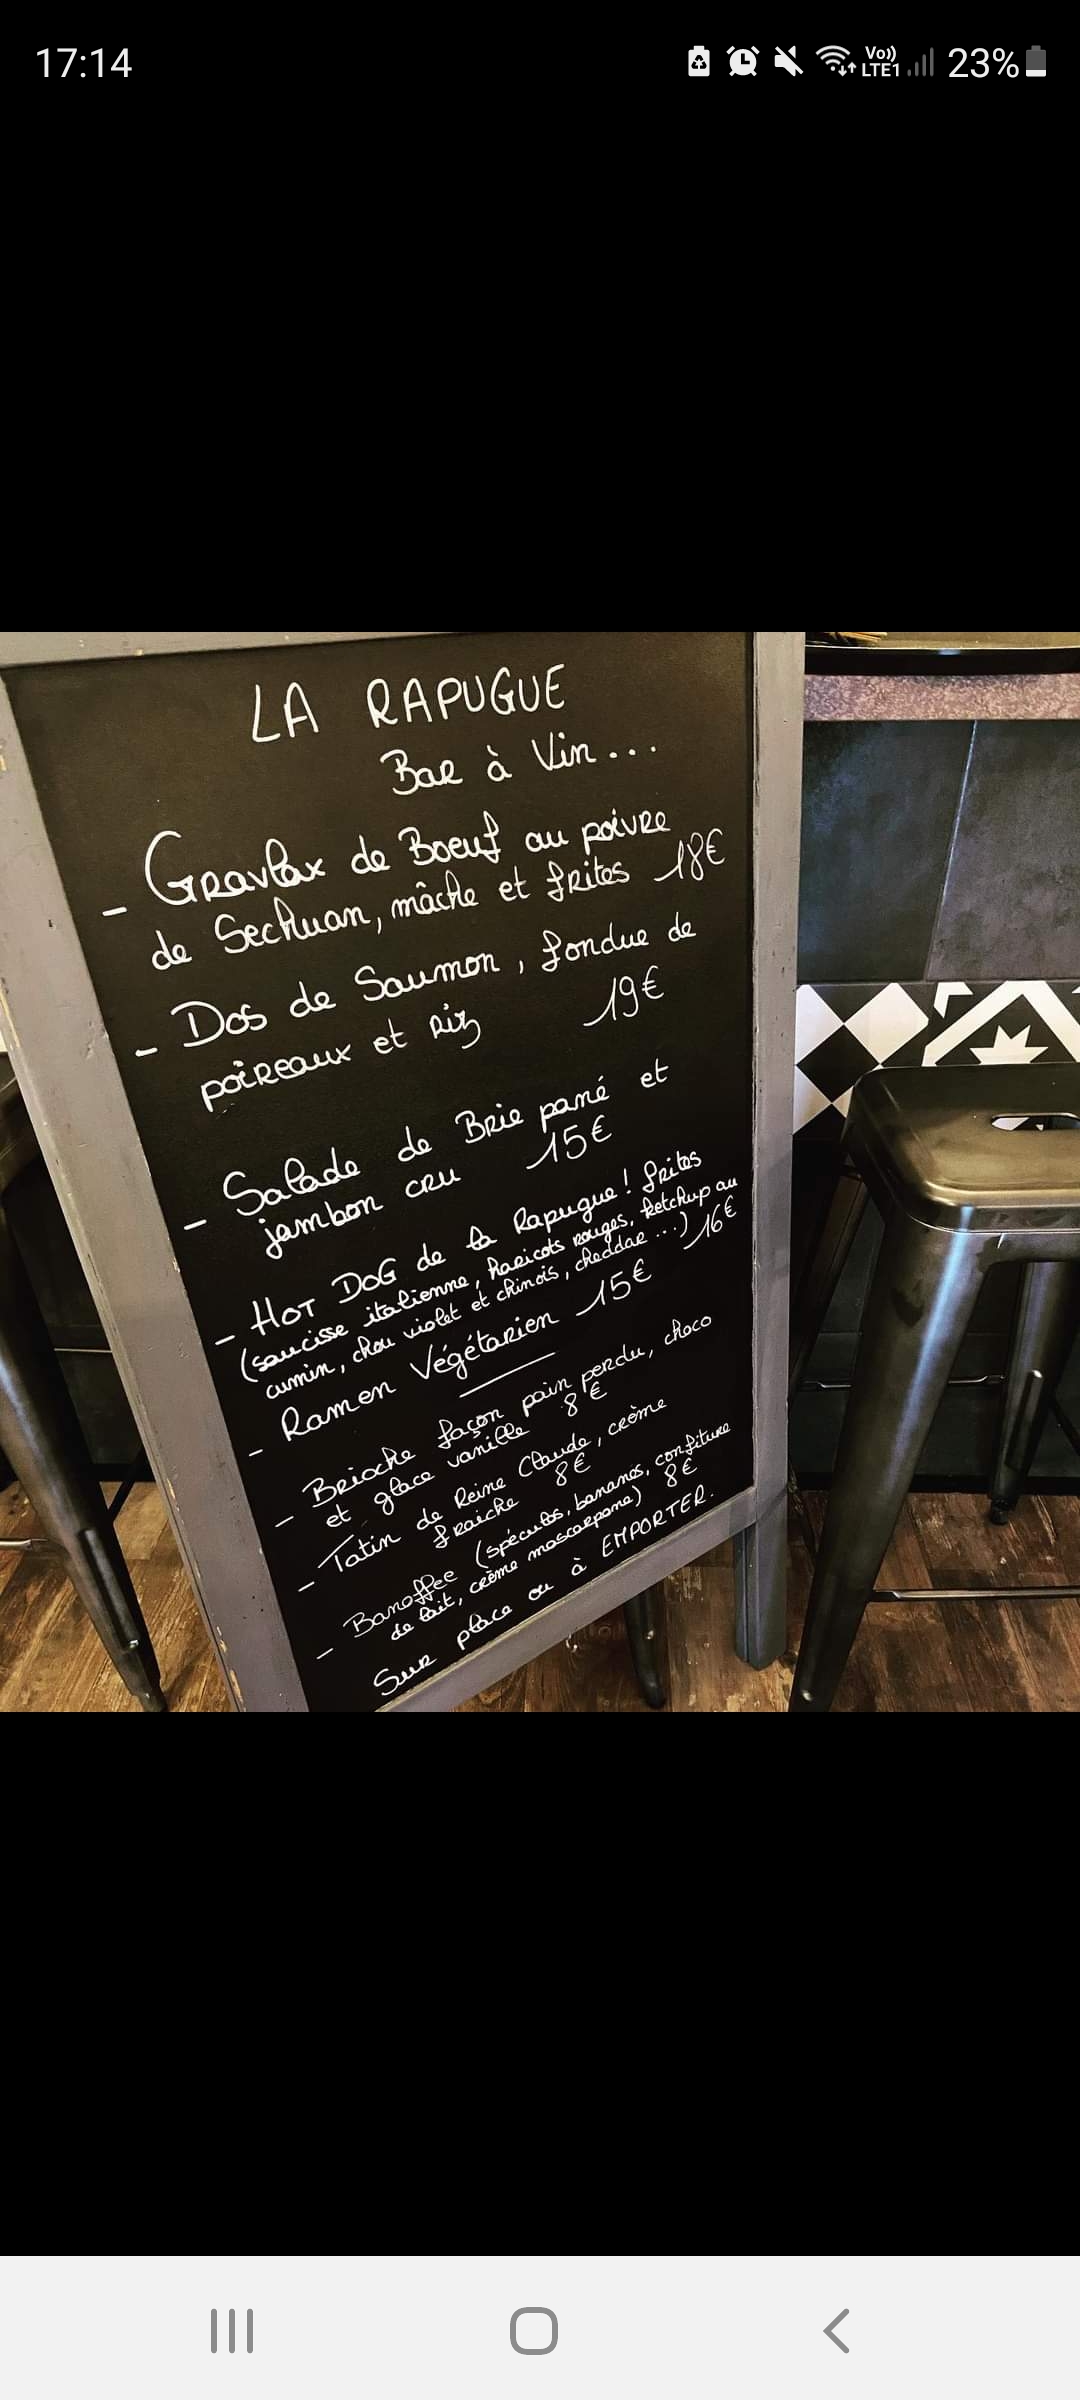 17:14
Vo))
LTE1
23%
LA RAPUGUE
Bar à Vin...
- Gravlax de Boeuf au poivre
de Sechuan, mâche et frites 18€
- Dos de Saumon, fondue de
poireaux et riz 19€
- Salade de Brie pané et
jambon cru 15€
- HOT DOG de la Rapugue! frites
(saucisse italienne, haricots rouges, ketchup au
cumin, chou violet et chinois, cheddar...) 16€
- Ramen Végétarien 15€
- Brioche façon pain perdu, choco
et glace vanille 8€
- Tatin de Reine Claude, crème
fraiche 8€
- Banoffee (spéculos, bananes, confiture
de lait, crème mascarpone) 8€
Sur place ou à EMPORTER.